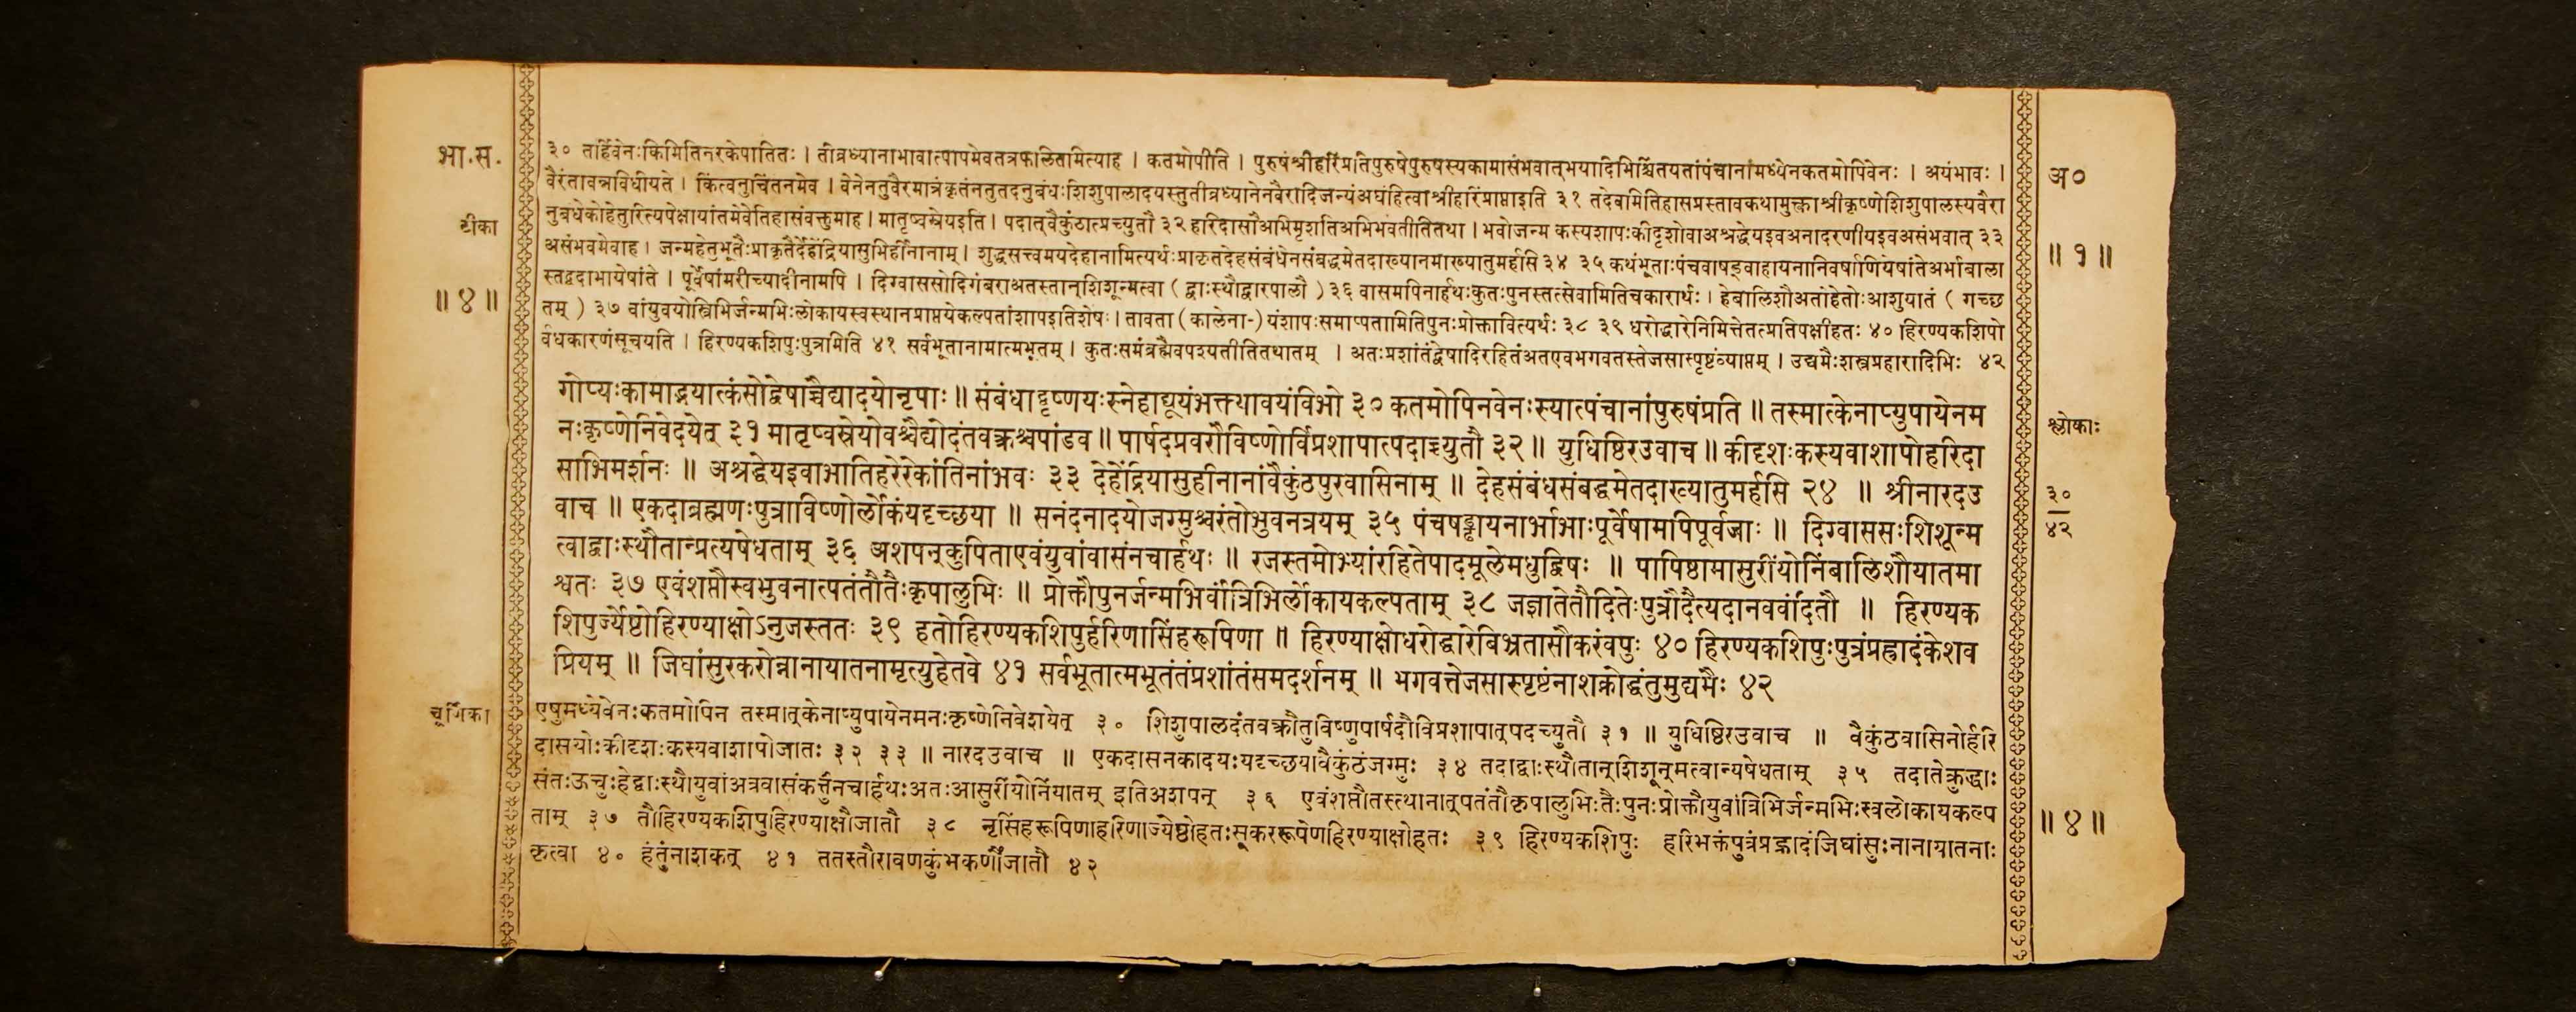 भा.स.
टीका
॥ ४ ॥
३० तर्हिवेनःकिमितिनरकेपातितः । तीव्रध्यानाभावात्पापमेवतत्रफलितमित्याह । कतमोपीति । पुरुषंश्रीहरिंप्रतिपुरुषेपुरुषस्यकामासंभवात्भयादिभिश्चिंतयतांपंचानांमध्येनकतमोपिवेनः । अयंभावः ।
वैरंतावन्नविधीयते । किंत्वनुचिंतनमेव । वेनेनतुवैरमात्रंकृतंनतुतदनुबंधःशिशुपालादयस्तुतीव्रध्यानेनवैरादिजन्यंअघंहित्वाश्रीहरिंप्राप्ताइति ३१ तदेवमितिहासप्रस्तावकथामुक्त्वाश्रीकृष्णेशिशुपालस्यवैरा
नुबंधेकोहेतुरित्यपेक्षायांतमेवेतिहासंवक्तुमाह । मातृष्वस्रेयइति । पदात्वैकुंठात्प्रच्युतौ ३२ हरिदासौअभिमृशतिअभिभवतीतितथा । भवोजन्म कस्यशापःकीदृशोवाअश्रद्धेयइवअनादरणीयइवअसंभवात् ३३
असंभवमेवाह । जन्महेतुभूतैःप्राकृतैर्देहेंद्रियासुभिर्हीनानाम् । शुद्धसत्त्वमयदेहानामित्यर्थःप्राकृतदेहसंबंधेनसंबद्धमेतदाख्यानमाख्यातुमर्हसि ३४ ३५ कथंभूताःपंचवाषड्वाहायनानिवर्षाणियेषांतेअर्भाबाला
स्तद्वदाभायेषांते । पूर्वेषांमरीच्यादीनामपि । दिग्वाससोदिगंबराअतस्तान्शिशून्मत्वा ( द्वाःस्थौद्वारपालौ ) ३६ वासमपिनार्हथःकुतःपुनस्तत्सेवामितिचकारार्थः । हेबालिशौअतोहेतोःआशुयातं ( गच्छ
तम् ) ३७ वांयुवयोस्त्रिभिर्जन्मभिःलोकायस्वस्थानप्राप्तयेकल्पतांशापइतिशेषः । तावता ( कालेना- ) यंशापःसमाप्यतामितिपुनःप्रोक्तावित्यर्थः ३८ ३९ धरोद्धारेनिमित्तेतत्प्रतिपक्षीहतः ४० हिरण्यकशिपो
र्वधकारणंसूचयति । हिरण्यकशिपुःपुत्रमिति ४१ सर्वभूतानामात्मभूतम् । कुतःसमंब्रह्मैवपश्यतीतितथातम् । अतःप्रशांतंद्वेषादिरहितंअतएवभगवतस्तेजसास्पृष्टंव्याप्तम् । उद्यमैःशस्त्रप्रहारादिभिः ४२
गोप्यःकामाद्भयात्कंसोद्वेषाच्चैद्यादयोनृपाः ॥ संबंधाद्वृष्णयःस्नेहाद्यूयंभक्त्यावयंविभो ३० कतमोपिनवेनःस्यात्पंचानांपुरुषंप्रति ॥ तस्मात्केनाप्युपायेनम
नःकृष्णेनिवेदयेत् ३१ मातृष्वस्रेयोवश्चैद्योदंतवक्रश्चपांडव ॥ पार्षदप्रवरौविष्णोर्विप्रशापात्पदाच्च्युतौ ३२ ॥ युधिष्ठिरउवाच ॥ कीदृशःकस्यवाशापोहरिदा
साभिमर्शनः ॥ अश्रद्धेयइवाभातिहरेरेकांतिनांभवः ३३ देहेंद्रियासुहीनानांवैकुंठपुरवासिनाम् ॥ देहसंबंधसंबद्धमेतदाख्यातुमर्हसि २४ ॥ श्रीनारदउ
वाच ॥ एकदाब्रह्मणःपुत्राविष्णोर्लोकंयदृच्छया ॥ सनंदनादयोजग्मुश्चरंतोभुवनत्रयम् ३५ पंचषड्ढायनार्भाभाःपूर्वेषामपिपूर्वजाः ॥ दिग्वाससःशिशून्म
त्वाद्वाःस्थौतान्प्रत्यषेधताम् ३६ अशपन्कुपिताएवंयुवांवासंनचार्हथः ॥ रजस्तमोभ्यांरहितेपादमूलेमधुद्विषः ॥ पापिष्ठामासुरींयोनिंबालिशौयातमा
श्वतः ३७ एवंशप्तौस्वभुवनात्पतंतौतैःकृपालुभिः ॥ प्रोक्तौपुनर्जन्मभिर्वांत्रिभिर्लोकायकल्पताम् ३८ जज्ञातेतौदितेःपुत्रौदैत्यदानववंदितौ ॥ हिरण्यक
शिपुर्ज्येष्ठोहिरण्याक्षोऽनुजस्ततः ३९ हतोहिरण्यकशिपुर्हरिणासिंहरूपिणा ॥ हिरण्याक्षोधरोद्धारेबिभ्रतासौकरंवपुः ४० हिरण्यकशिपुःपुत्रंप्रह्रादंकेशव
प्रियम् ॥ जिघांसुरकरोन्नानायातनामृत्युहेतवे ४१ सर्वभूतात्मभूतंतंप्रशांतंसमदर्शनम् ॥ भगवत्तेजसास्पृष्टंनाशक्नोद्धंतुमुद्यमैः ४२
चूर्णिका
एषुमध्येवेनःकतमोपिन तस्मात्केनाप्युपायेनमनःकृष्णेनिवेशयेत् ३० शिशुपालदंतवक्रौतुविष्णुपार्षदौविप्रशापात्पदच्युतौ ३१ ॥ युधिष्ठिरउवाच ॥ वैकुंठवासिनोर्हरि
दासयोःकीदृशःकस्यवाशापोजातः ३२ ३३ ॥ नारदउवाच ॥ एकदासनकादयःयदृच्छयावैकुंठंजग्मुः ३४ तदाद्वाःस्थौतान्शिशून्मत्वान्यषेधताम् ३५ तदातेक्रुद्धाः
संतःऊचुःहेद्वाःस्थौयुवांअत्रवासंकर्त्तुंनचार्हथःअतःआसुरींयोनिंयातम् इतिअशपन् ३६ एवंशप्तौतत्स्थानात्पतंतौकृपालुभिःतैःपुनःप्रोक्तौयुवांत्रिभिर्जन्मभिःस्वलोकायकल्प
ताम् ३७ तौहिरण्यकशिपुहिरण्याक्षौजातौ ३८ नृसिंहरूपिणाहरिणाज्येष्ठोहतःसूकररूपेणहिरण्याक्षोहतः ३९ हिरण्यकशिपुः हरिभक्तंपुत्रंप्रह्लादंजिघांसुःनानायातनाः
कृत्वा ४० हंतुंनाशकत् ४१ ततस्तौरावणकुंभकर्णौजातौ ४२
अ०
॥ १ ॥
श्लोकाः
३०
४२
॥ ४ ॥